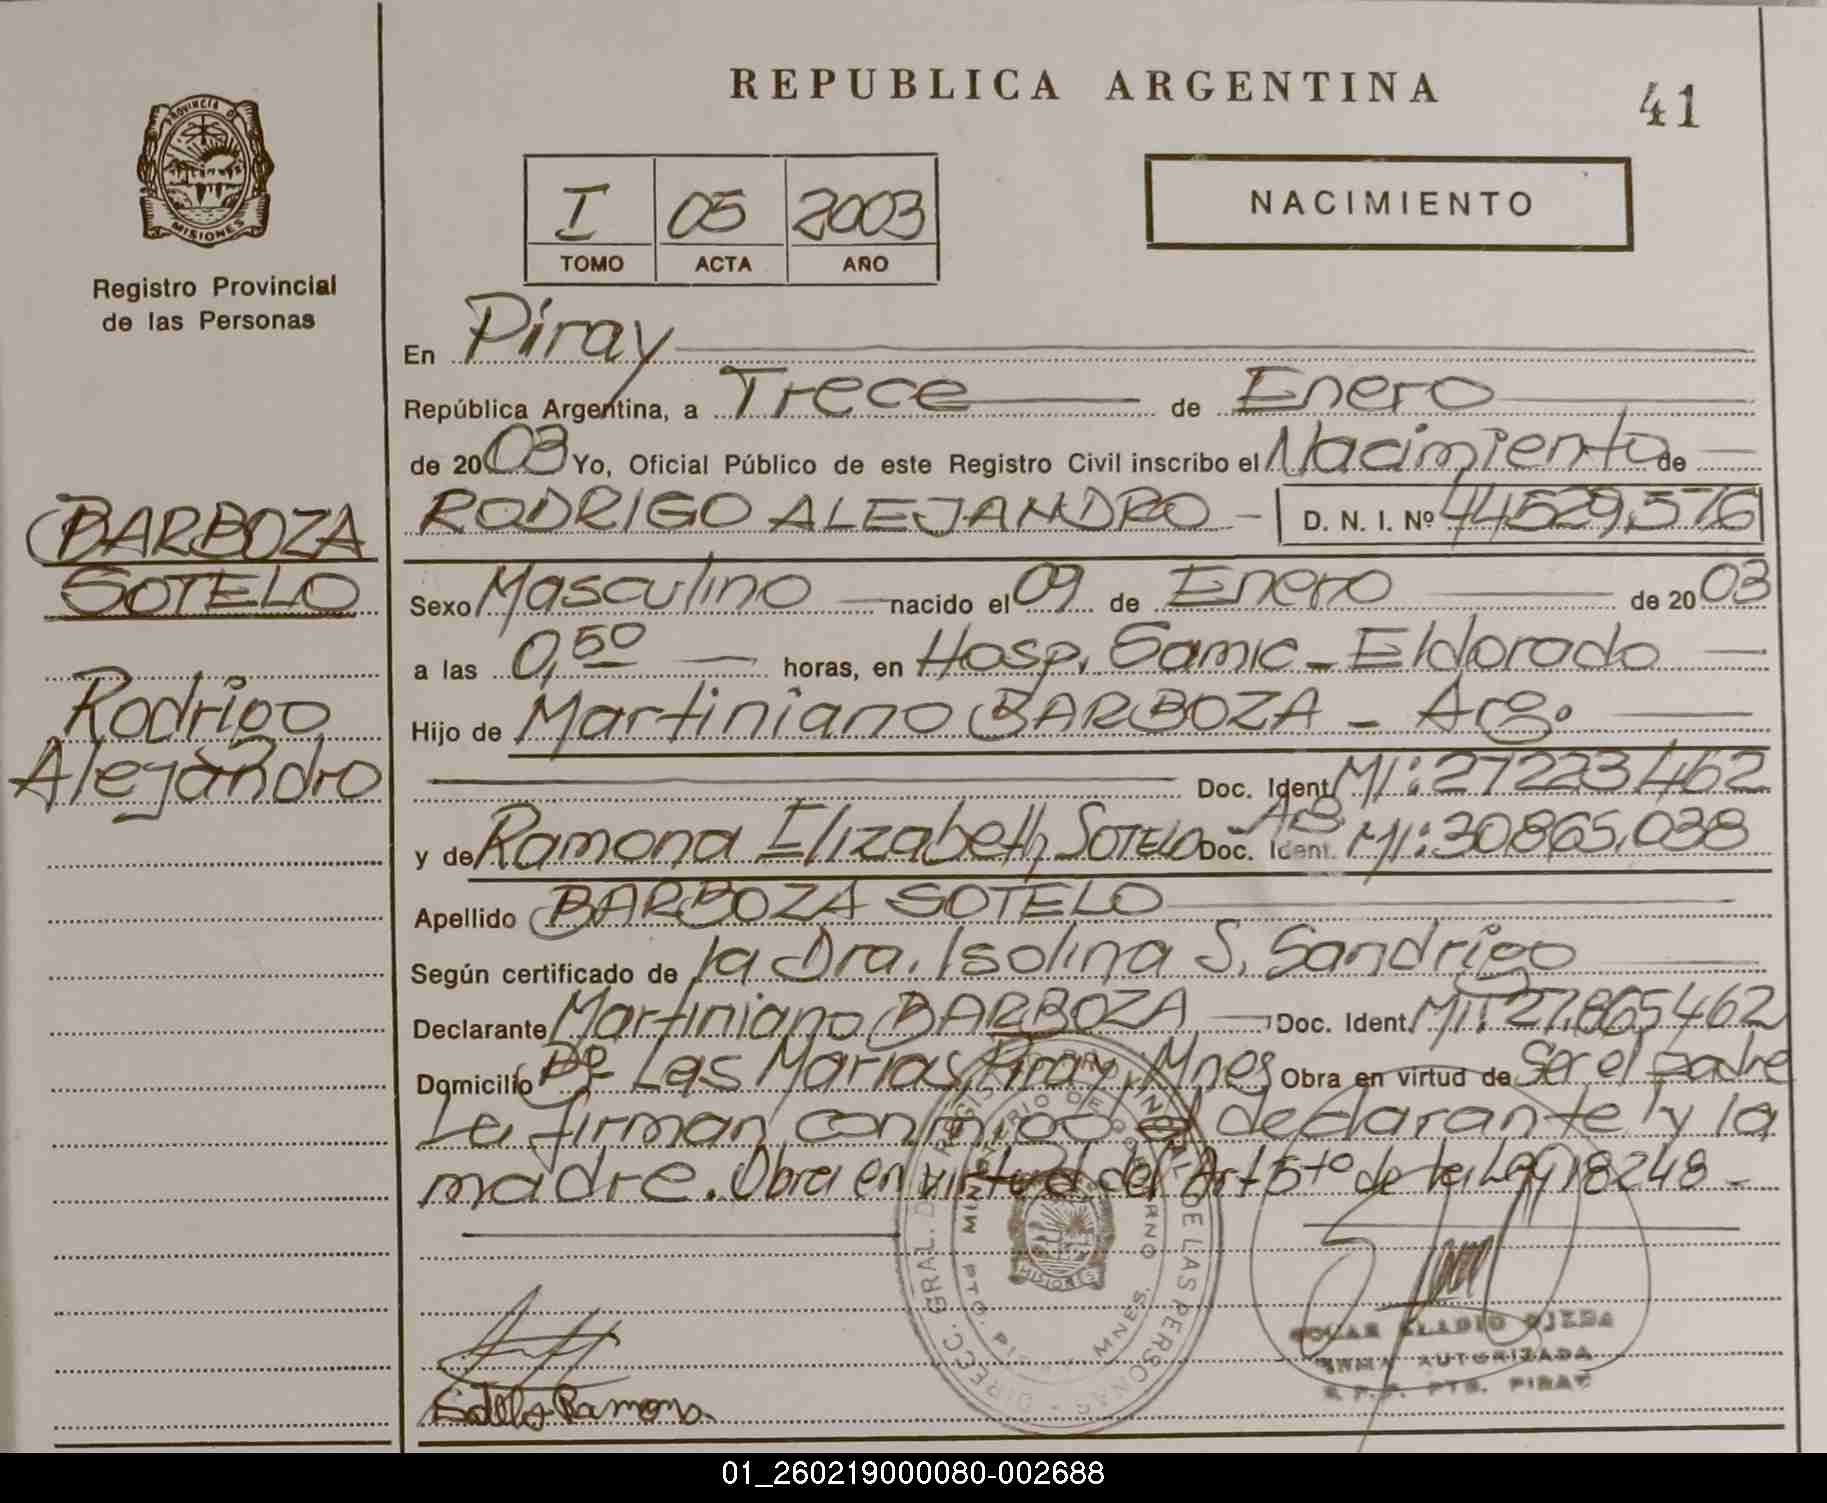 REPUBLICA ARGENTINA
41
PROVINCIA DE
MISIONES
Registro Provincial
de las Personas
I 05 2003
TOMO ACTA AÑO
NACIMIENTO
En Piray
República Argentina, a Trece de Enero
de 2003 Yo, Oficial Público de este Registro Civil inscribo el Nacimiento de
BARBOZA
SOTELO
Rodrigo
Alejandro
RODRIGO ALEJANDRO - D. N. I. Nº 44529.576
Sexo Masculino nacido el 09 de Enero de 2003
a las 0,50 horas, en Hosp. Samic - Eldorado
Hijo de Martiniano BARBOZA - Arg.
Doc. Ident. MI: 27223462
y de Ramona Elizabeth SOTELO - Arg. Doc. Ident. MI: 30.865.038
Apellido BARBOZA SOTELO
Según certificado de la Dra. Isolina S. Sandrigo
Declarante Martiniano BARBOZA Doc. Ident. MI: 27.865462
Domicilio Bº Las Marias, Piray, Mnes Obra en virtud de Ser el padre
Le, firman conmigo el declarante y la
madre. Obra en virtud del Art 5to de la Ley 18248 -
DIRECC. GRAL. DE LAS PERSONAS
MISIONES
PTO. MNES.
Sotelo Ramona
OJEDA
AUTORIZADA
PTO. PIRAY
01_260219000080-002688